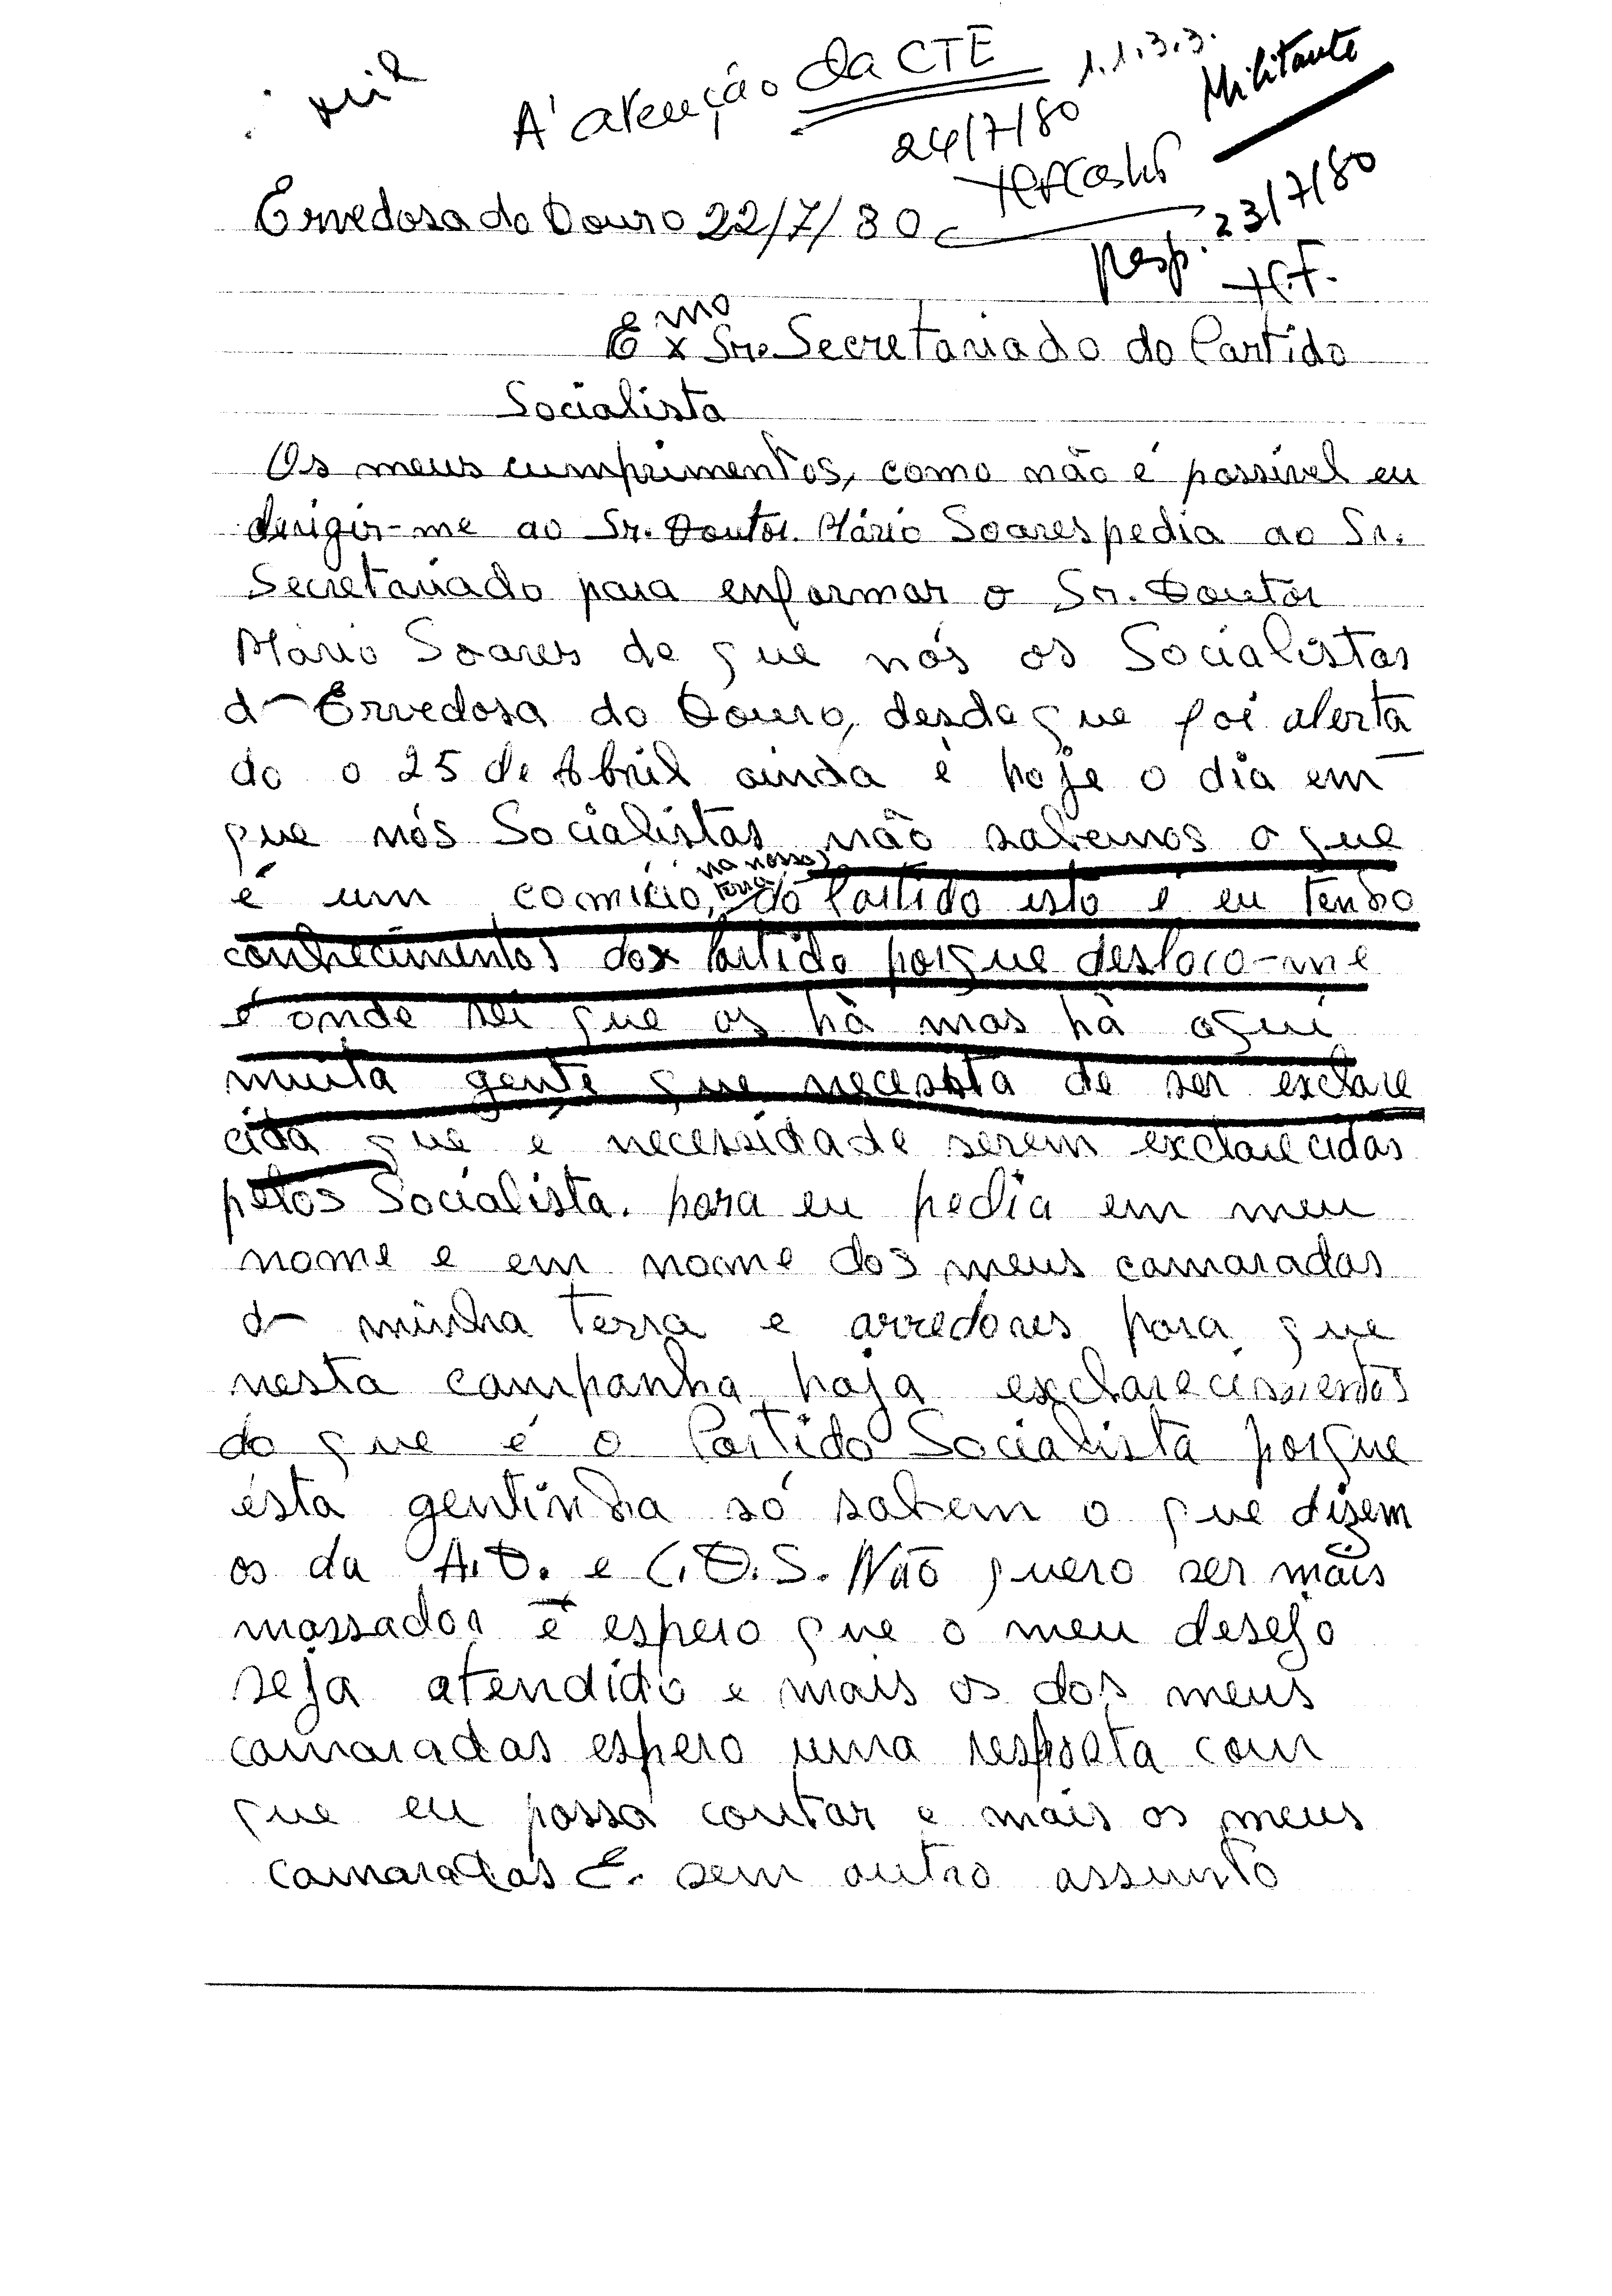 A' atenção da CTE
1.1.3.3.
Militante
24/7/80
Ervedosa do Douro 22/7/80
Resp. 23/7/80
H.F.
Exmo Sr. Secretariado do Partido
Socialista
Os meus cumprimentos, como não é possível eu
dirigir-me ao Sr. Doutor Mário Soares pedia ao Sr.
Secretariado para enformar o Sr. Doutor
Mário Soares de que nós os Socialistas
d Ervedosa do Douro, desde que foi alerta
do o 25 de Abril ainda é hoje o dia em
que nós Socialistas não sabemos o que
é um comício, na nossa terra do Partido isto é eu tenho
conhecimentos dox Partido porque desloco-me
é onde sei que os há mas há aqui
muita gente que necessita de ser exclare
cida que é necessidade serem exclarecidas
pelos Socialista. para eu pedia em meu
nome e em nome dos meus camaradas
d minha terra e arredores para que
nesta campanha haja exclarecimentos
do que é o Partido Socialista porque
ésta gentinha só sabem o que dizem
os da A.D. e C.D.S. Não quero ser mais
massador e espero que o meu desejo
seja atendido e mais os dos meus
camaradas espero uma resposta com
que eu possa contar e mais os meus
camaradas E. sem outro assunto